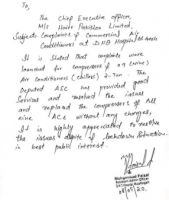 To,
The Chief Executive officer,
M/s Haier Pakistan Limited,
Subject: Complaines of Commercial A/C
Conditioners at DHQ Hospital
It is stated that complaints were
launched for compressors of 09 (nine)
Air conditioners (chillers) 4-Ton. The
Deputed AEC has provided good
Services and resolved the issues
and replaced the compressors of all
nine ACs without any charges,
It is highly appreciated to resolve
the issues despite of lockdown situation
in best public interest.
Muhammad Faisal